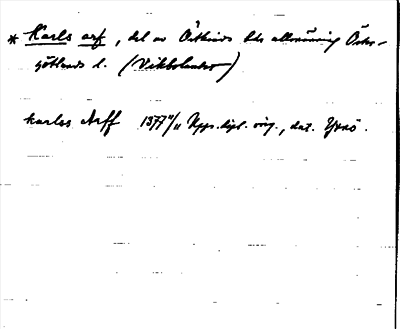 * Karls arf, del av Östkinds hds allmänning Öster-
götlands l. (Vikbolandet)
karlss Arff 1377 11/11 Upps. dipl. orig., dat. Yxnö.